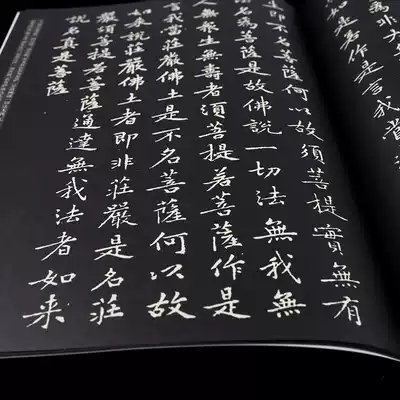 非大
是若作是言我當
生即不名菩薩何以故須菩提實無有
法名為菩薩是故佛說一切法無我無
人無衆生無壽者須菩提若菩薩作是
言我當莊嚴佛土是不名菩薩何以故
如来說莊嚴佛土者即非莊嚴是名莊
嚴須菩提若菩薩通達無我法者如来
說名真是菩薩